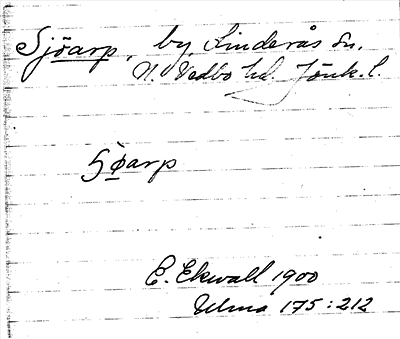 Sjöarp, by, Linderås sn,
N. Vedbo hd. Jönk. l.
Søarp
E. Ekwall 1900
Ulma 175:212